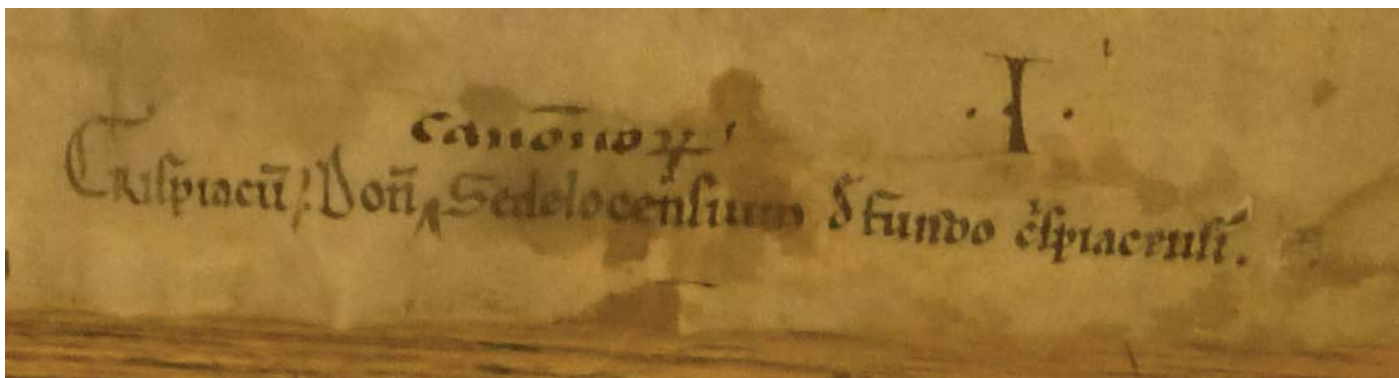 ·I·
canōnoꝝ
Crispiacū/: Donͫ̄ ‸ Sedelocensium đ fundo c̍spiacensi.